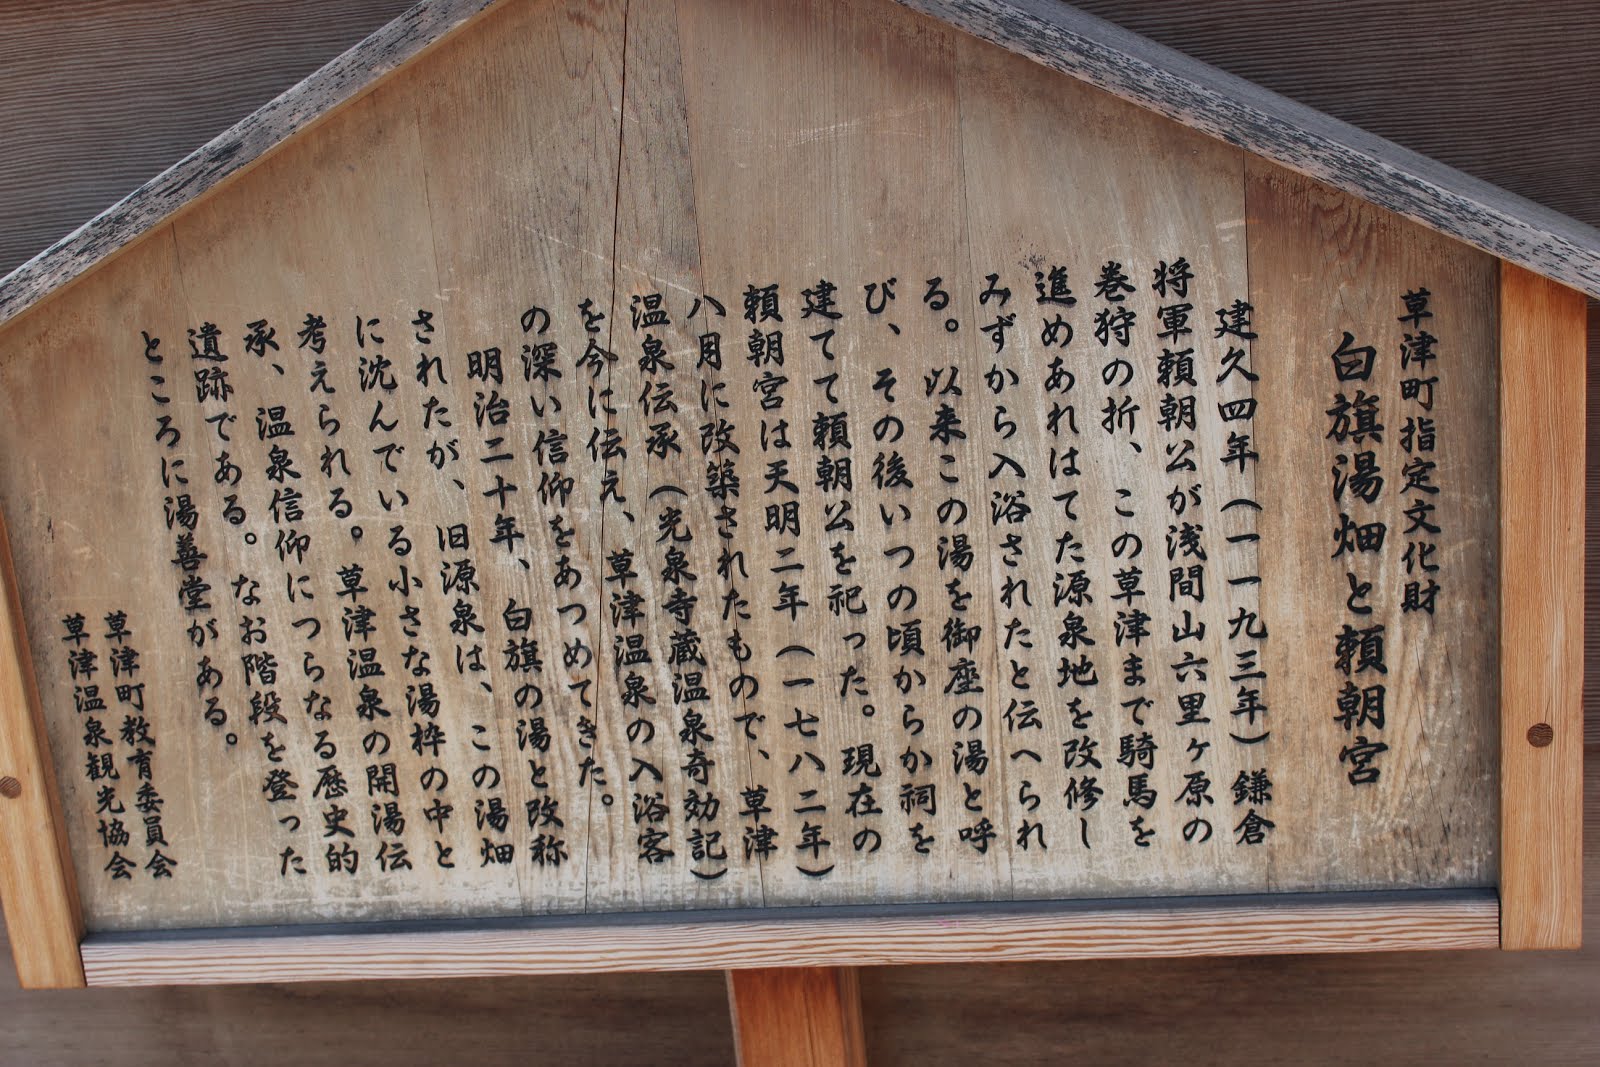 草津町指定文化財
白旗湯畑と頼朝宮
建久四年（一一九三年）鎌倉
将軍頼朝公が浅間山六里ヶ原の
巻狩の折、この草津まで騎馬を
進めあれはてた源泉地を改修し
みずから入浴されたと伝へられ
る。以来この湯を御座の湯と呼
び、その後いつの頃からか祠を
建てて頼朝公を祀った。現在の
頼朝宮は天明二年（一七八二年）
八月に改築されたもので、草津
温泉伝承（光泉寺蔵温泉奇効記）
を今に伝え、草津温泉の入浴客
の深い信仰をあつめてきた。
明治二十年、白旗の湯と改称
されたが、旧源泉は、この湯畑
に沈んでいる小さな湯枠の中と
考えられる。草津温泉の開湯伝
承、温泉信仰につらなる歴史的
遺跡である。なお階段を登った
ところに湯善堂がある。
草津町教育委員会
草津温泉観光協会